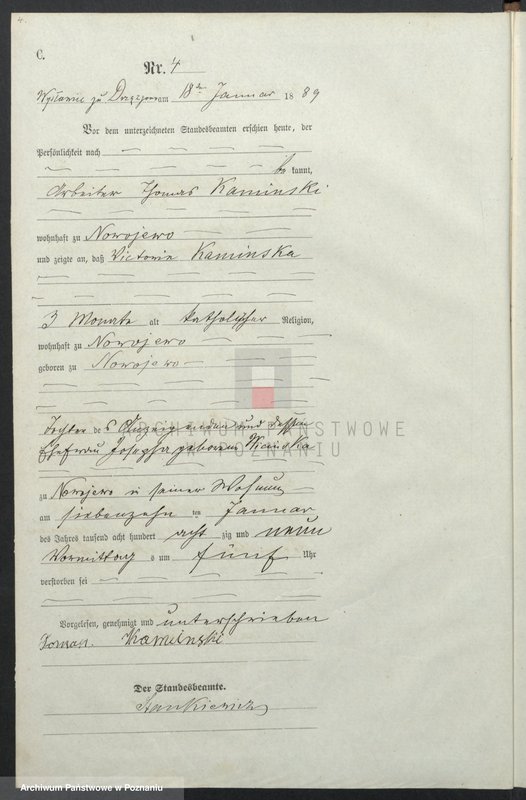 4.
C.
Nr. 4
zu am 18ten Januar 1889
Vor dem unterzeichneten Standesbeamten erschien heute, der
Persönlichkeit nach
be kannt,
Arbeiter Thomas Kaminski
wohnhaft zu Nowojewo
und zeigte an, daß Victoria Kaminska
3 Monate alt katholischer Religion,
wohnhaft zu Nowojewo
geboren zu Nowojewo
Tochter des Anzeigenden und dessen
Ehefrau Josepha geborene
zu Nowojewo in seiner Wohnung
am siebenzehn ten Januar
des Jahres tausend acht hundert acht zig und neun
Vormittag s um fünf Uhr
verstorben sei
Vorgelesen, genehmigt und unterschrieben
Kaminski
Der Standesbeamte.
Stankiewicz
ARCHIWUM PAŃSTWOWE
W POZNANIU
Archiwum Państwowe w Poznaniu